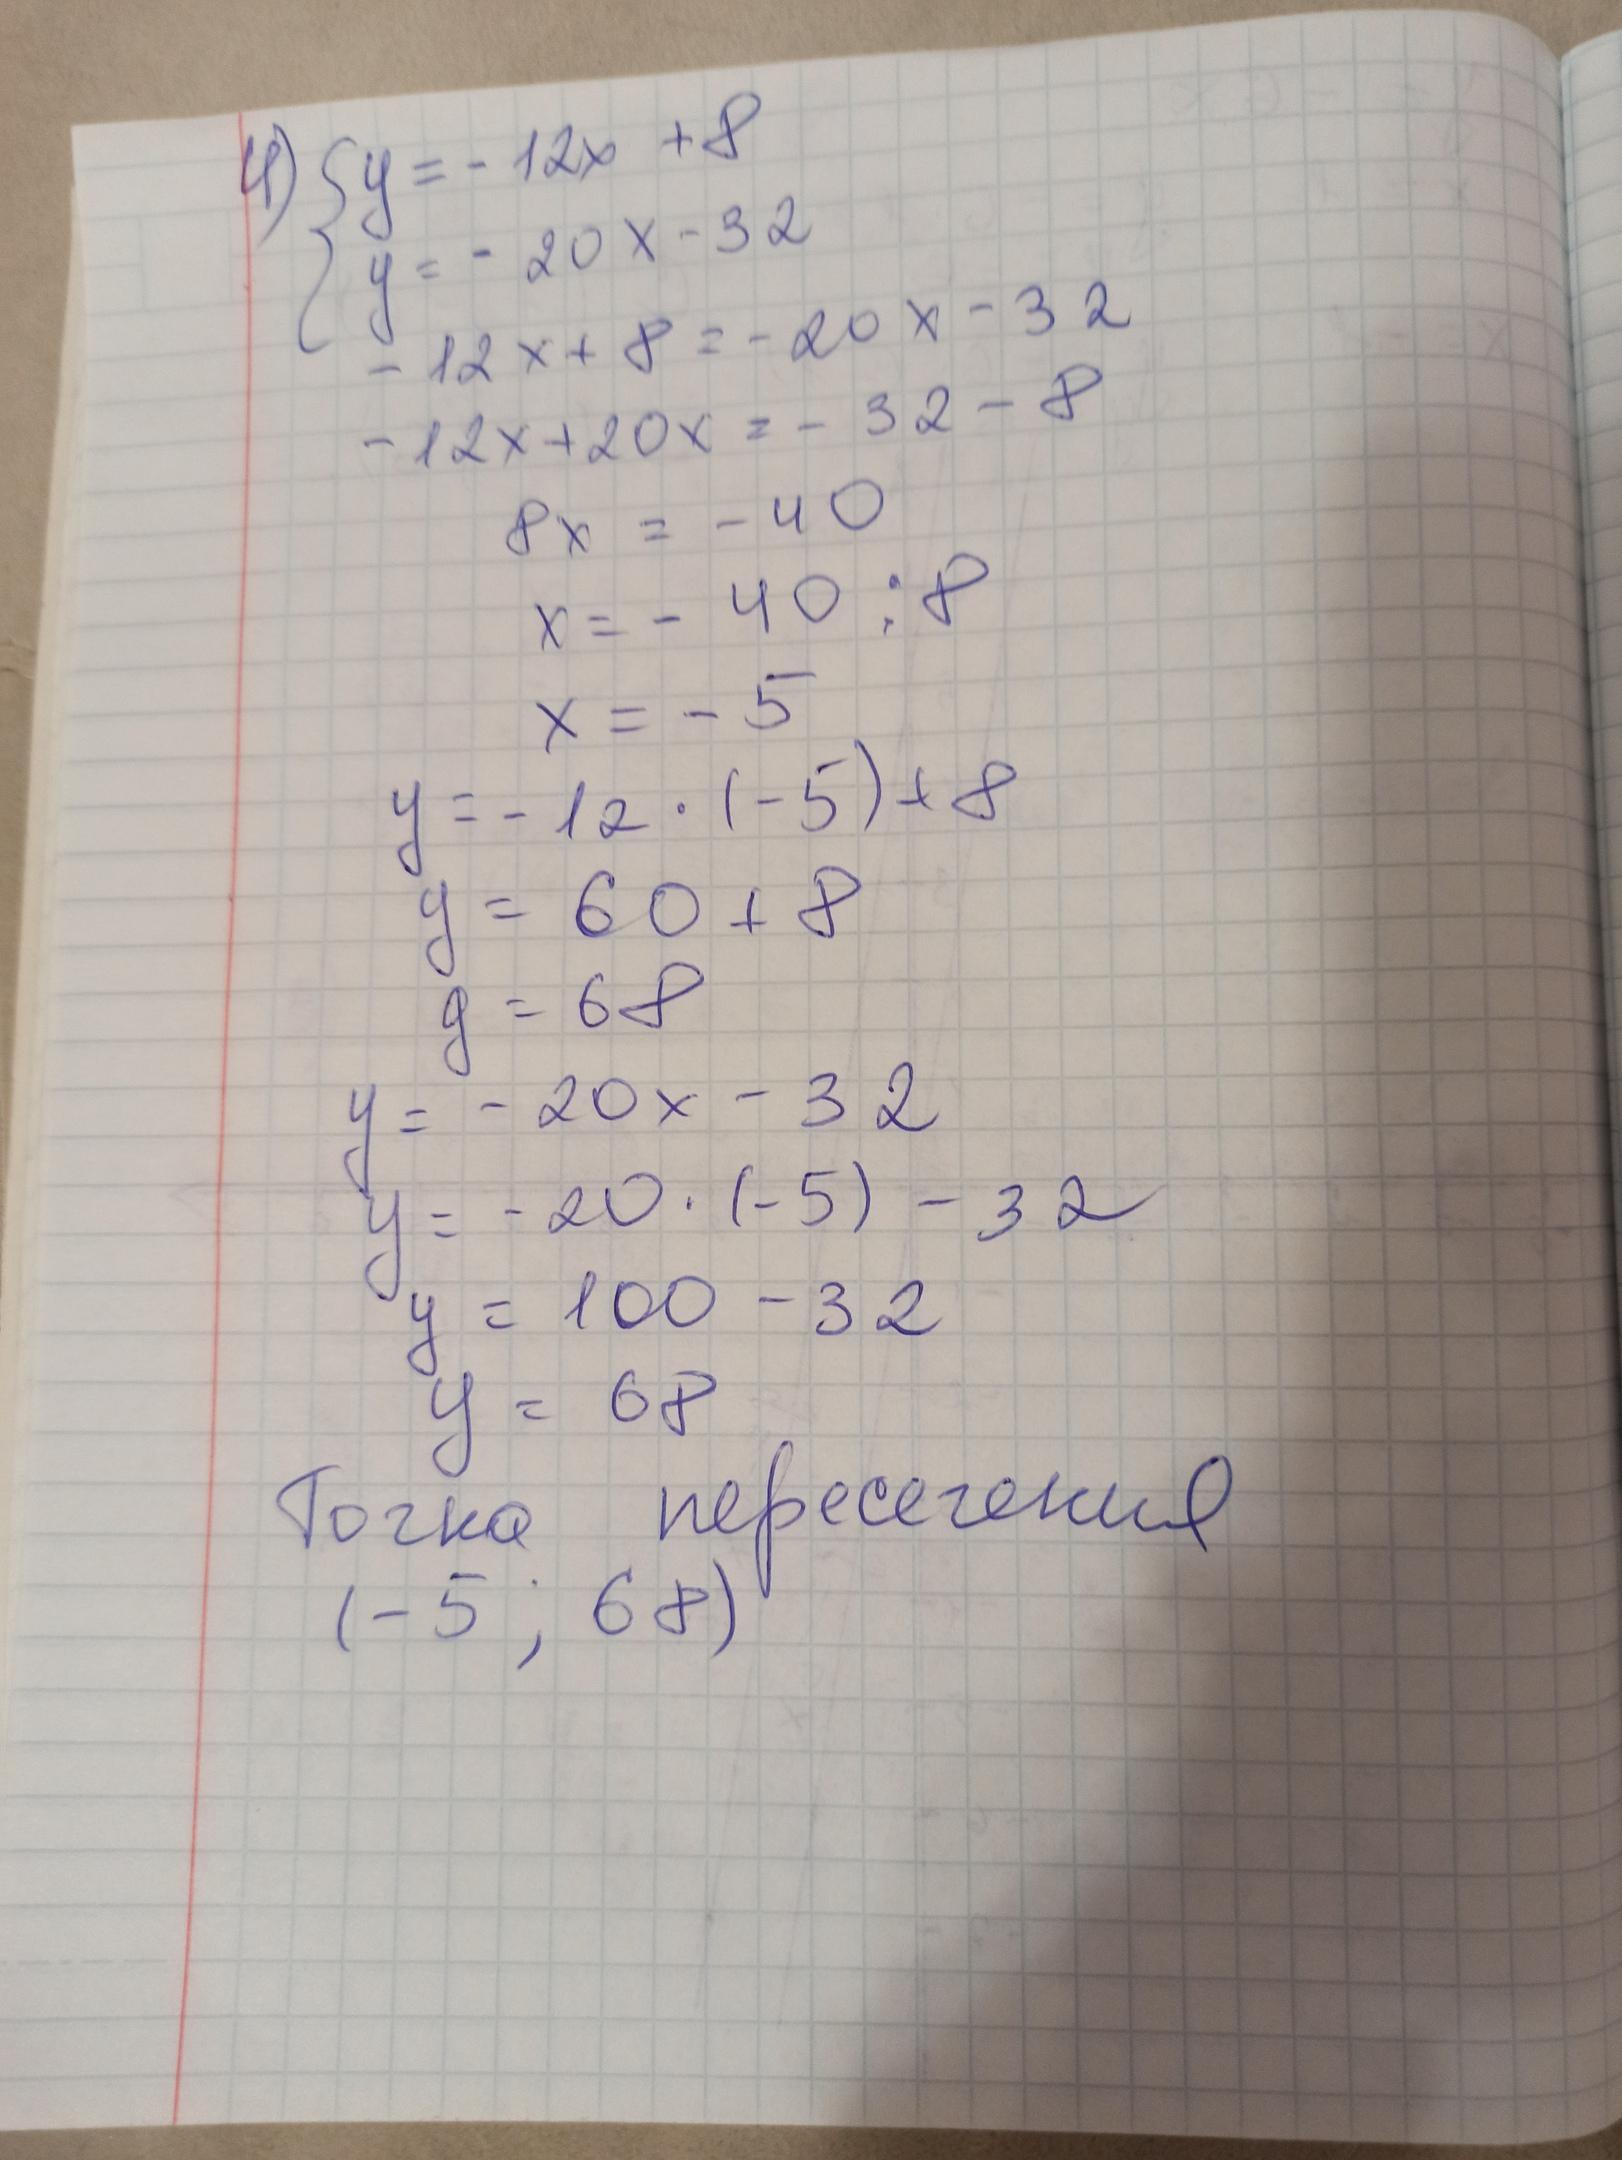 4) { y = - 12x + 8
y = - 20x - 32
- 12x + 8 = - 20x - 32
- 12x + 20x = - 32 - 8
8x = - 40
x = - 40 : 8
x = - 5
y = - 12 · (-5) + 8
y = 60 + 8
y = 68
y = - 20x - 32
y = - 20 · (-5) - 32
y = 100 - 32
y = 68
Точка пересечения
(-5 ; 68)